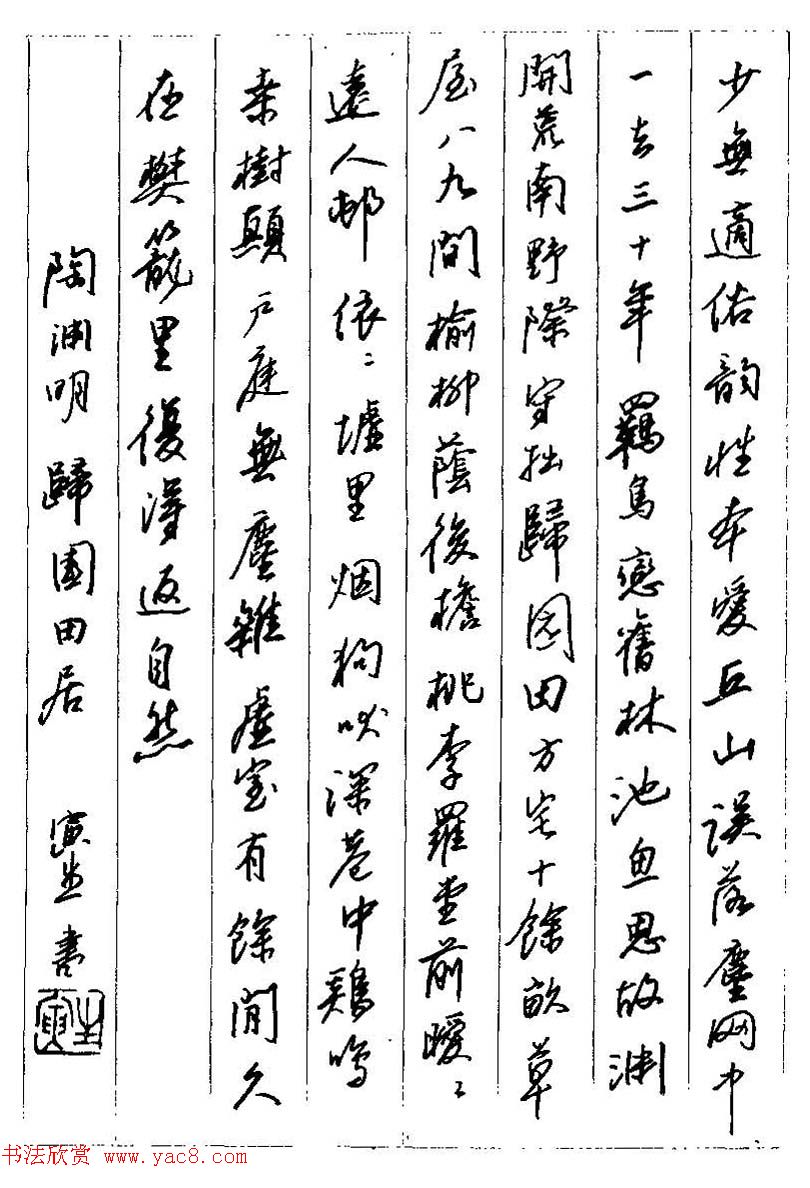 少無適俗韵性本愛丘山误落塵网中
一去三十年羈鳥戀舊林池魚思故渊
開荒南野際守拙歸园田方宅十餘畝草
屋八九間榆柳蔭後檐桃李羅堂前曖〻
遠人邨依〻墟里烟狗吠深巷中鷄鳴
桑樹顛户庭無塵雜虚室有餘閒久
在樊籠里復得返自然
陶渊明歸園田居 寅生書
寅生
书法欣赏 www.yac8.com